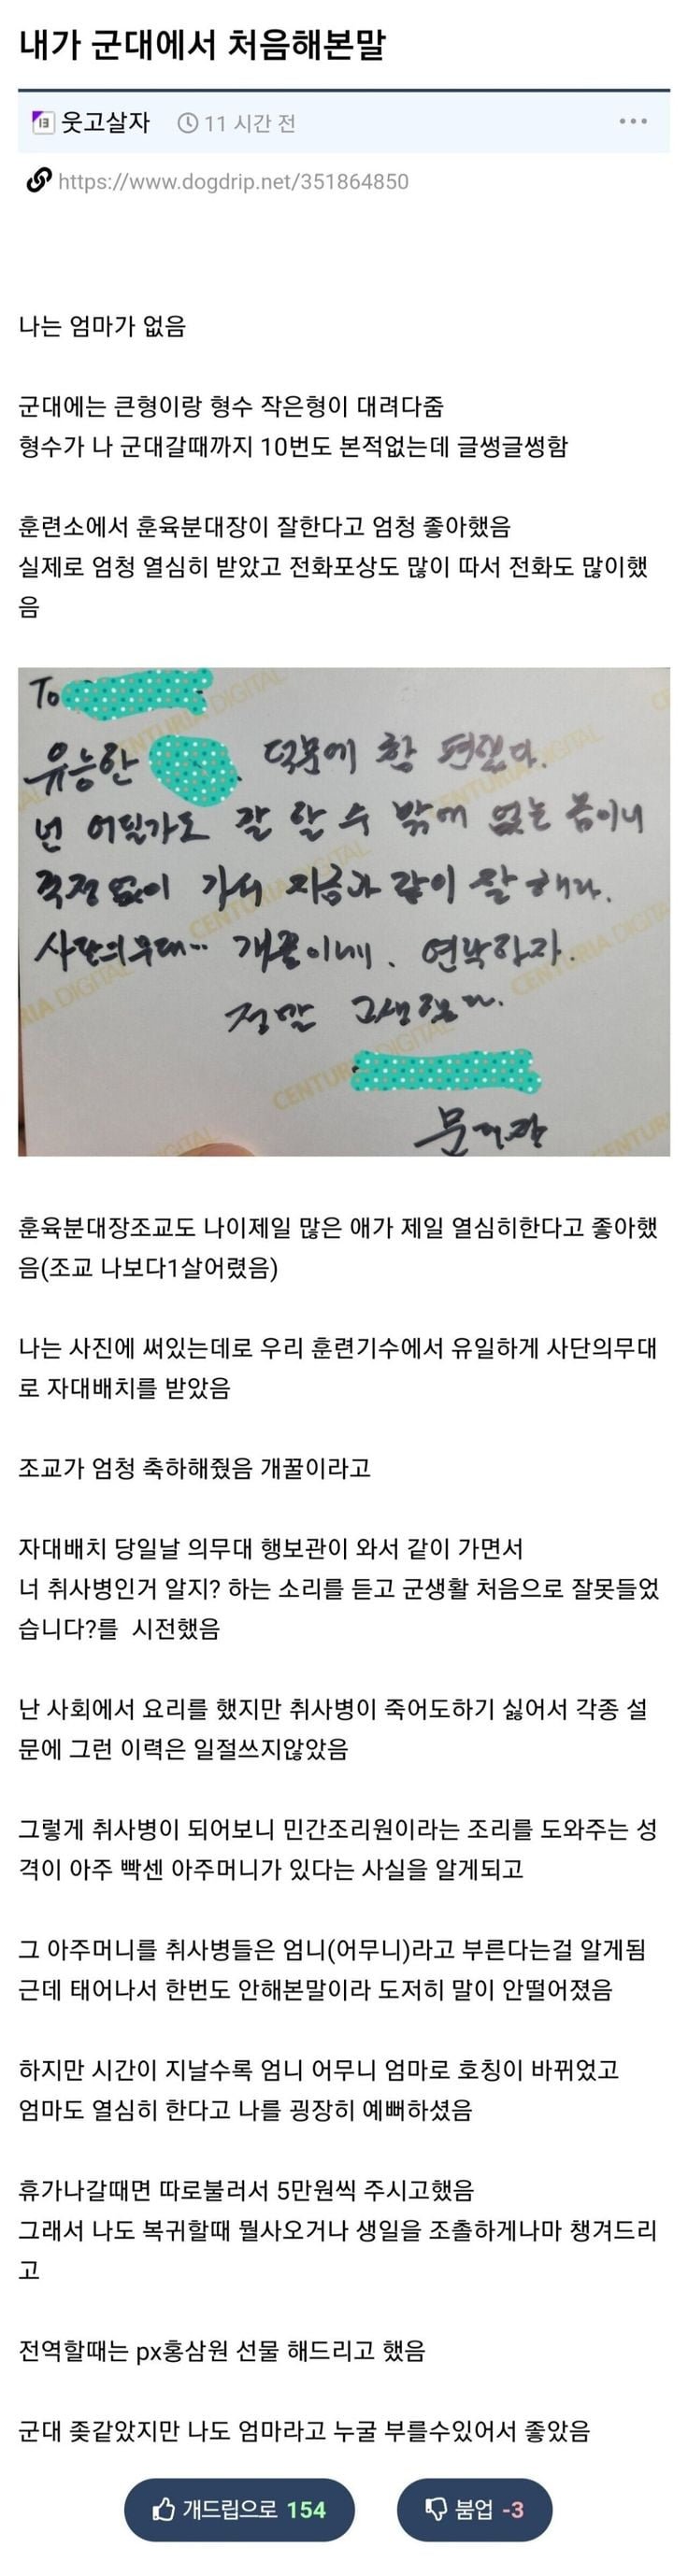 내가 군대에서 처음해본말
웃고살자 11 시간 전
https://www.dogdrip.net/351864850
나는 엄마가 없음
군대에는 큰형이랑 형수 작은형이 대려다줌
형수가 나 군대갈때까지 10번도 본적없는데 글썽글썽함
훈련소에서 훈육분대장이 잘한다고 엄청 좋아했음
실제로 엄청 열심히 받았고 전화포상도 많이 따서 전화도 많이했
음
To
유능한 덕분에 참 편했다.
넌 어딜가도 잘 할 수 밖에 없는 놈이니
걱정없이 가서 지금과 같이 잘 해라.
사단의무대... 개꿀이네. 연락하자.
정말 고생했다.
훈육분대장조교도 나이제일 많은 애가 제일 열심히한다고 좋아했
음(조교 나보다1살어렸음)
나는 사진에 써있는데로 우리 훈련기수에서 유일하게 사단의무대
로 자대배치를 받았음
조교가 엄청 축하해줬음 개꿀이라고
자대배치 당일날 의무대 행보관이 와서 같이 가면서
너 취사병인거 알지? 하는 소리를 듣고 군생활 처음으로 잘못들었
습니다?를 시전했음
난 사회에서 요리를 했지만 취사병이 죽어도하기 싫어서 각종 설
문에 그런 이력은 일절쓰지않았음
그렇게 취사병이 되어보니 민간조리원이라는 조리를 도와주는 성
격이 아주 빡센 아주머니가 있다는 사실을 알게되고
그 아주머니를 취사병들은 엄니(어무니)라고 부른다는걸 알게됨
근데 태어나서 한번도 안해본말이라 도저히 말이 안떨어졌음
하지만 시간이 지날수록 엄니 어무니 엄마로 호칭이 바뀌었고
엄마도 열심히 한다고 나를 굉장히 예뻐하셨음
휴가나갈때면 따로불러서 5만원씩 주시고했음
그래서 나도 복귀할때 뭘사오거나 생일을 조촐하게나마 챙겨드리
고
전역할때는 px홍삼원 선물 해드리고 했음
군대 좆같았지만 나도 엄마라고 누굴 부를수있어서 좋았음
개드립으로 154 붐업 -3